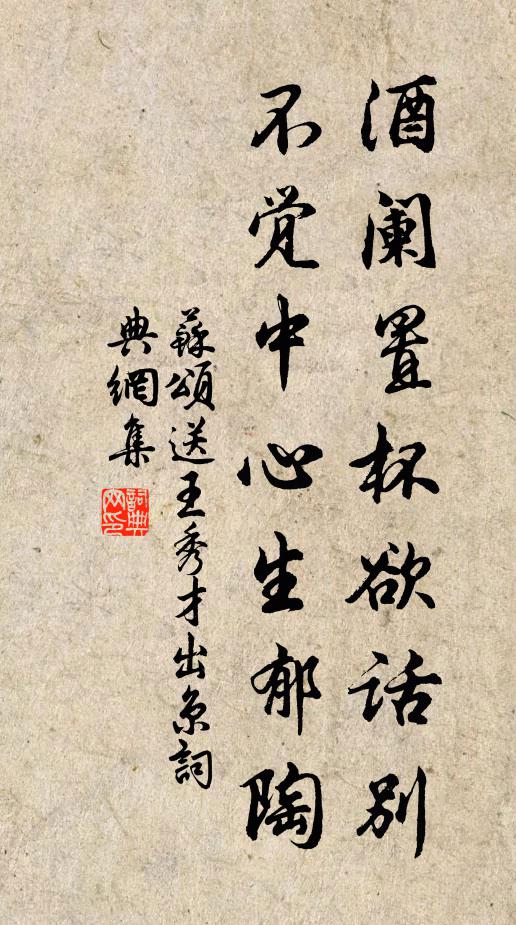 酒阑置杯欲话别
不觉中心生郁陶
蘇頌送王秀才出京詞
典網集
詞典网印